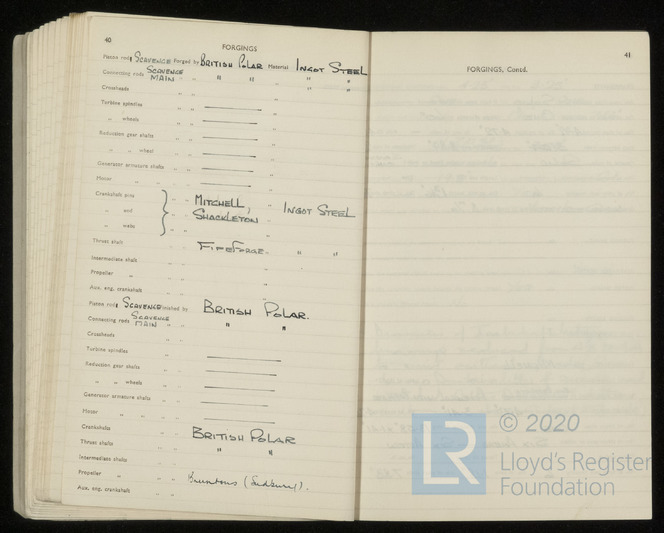 40
FORGINGS
Piston rods SCAVENGE Forged by BRITISH POLAR Material INGOT STEEL
Connecting rods SCAVENGE MAIN " " " " " " "
Crossheads " " " " "
Turbine spindles " "
" wheels " "
Reduction gear shafts " "
" " wheel " "
Generator armature shafts " "
Motor " " " "
Crankshaft pins " " MITCHELL, "
" and SHACKLETON " INGOT STEEL
" webs " "
Thrust shaft " " FIFEFORGE. " " "
Intermediate shaft " "
Propeller " " "
Aux. eng. crankshaft " " "
Piston rods SCAVENGE Finished by BRITISH POLAR.
Connecting rods SCAVENGE MAIN " " " "
Crossheads " "
Turbine spindles " "
Reduction gear shafts " "
" " wheels " "
Generator armature shafts " "
Motor " " " "
Crankshafts " " BRITISH POLAR
Thrust shafts " " " "
Intermediate shafts " "
Propeller " " " (Sudbury).
Aux. eng. crankshaft " "
41
FORGINGS, Contd.
LR
© 2020
Lloyd's Register
Foundation